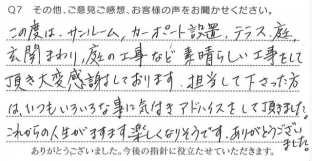 Q7 その他、ご意見ご感想、お客様の声をお聞かせください。
この度は、サンルーム、カーポート設置、テラス、庭、
玄関まわり、庭の工事など素晴らしい工事をして
頂き大変感謝しております。担当して下さった方
はいつもいろいろな事に気付きアドバイスをして頂きました。
これからの人生がますます楽しくなりそうです。ありがとうござい
ました。
ありがとうございました。今後の指針に役立たせていただきます。